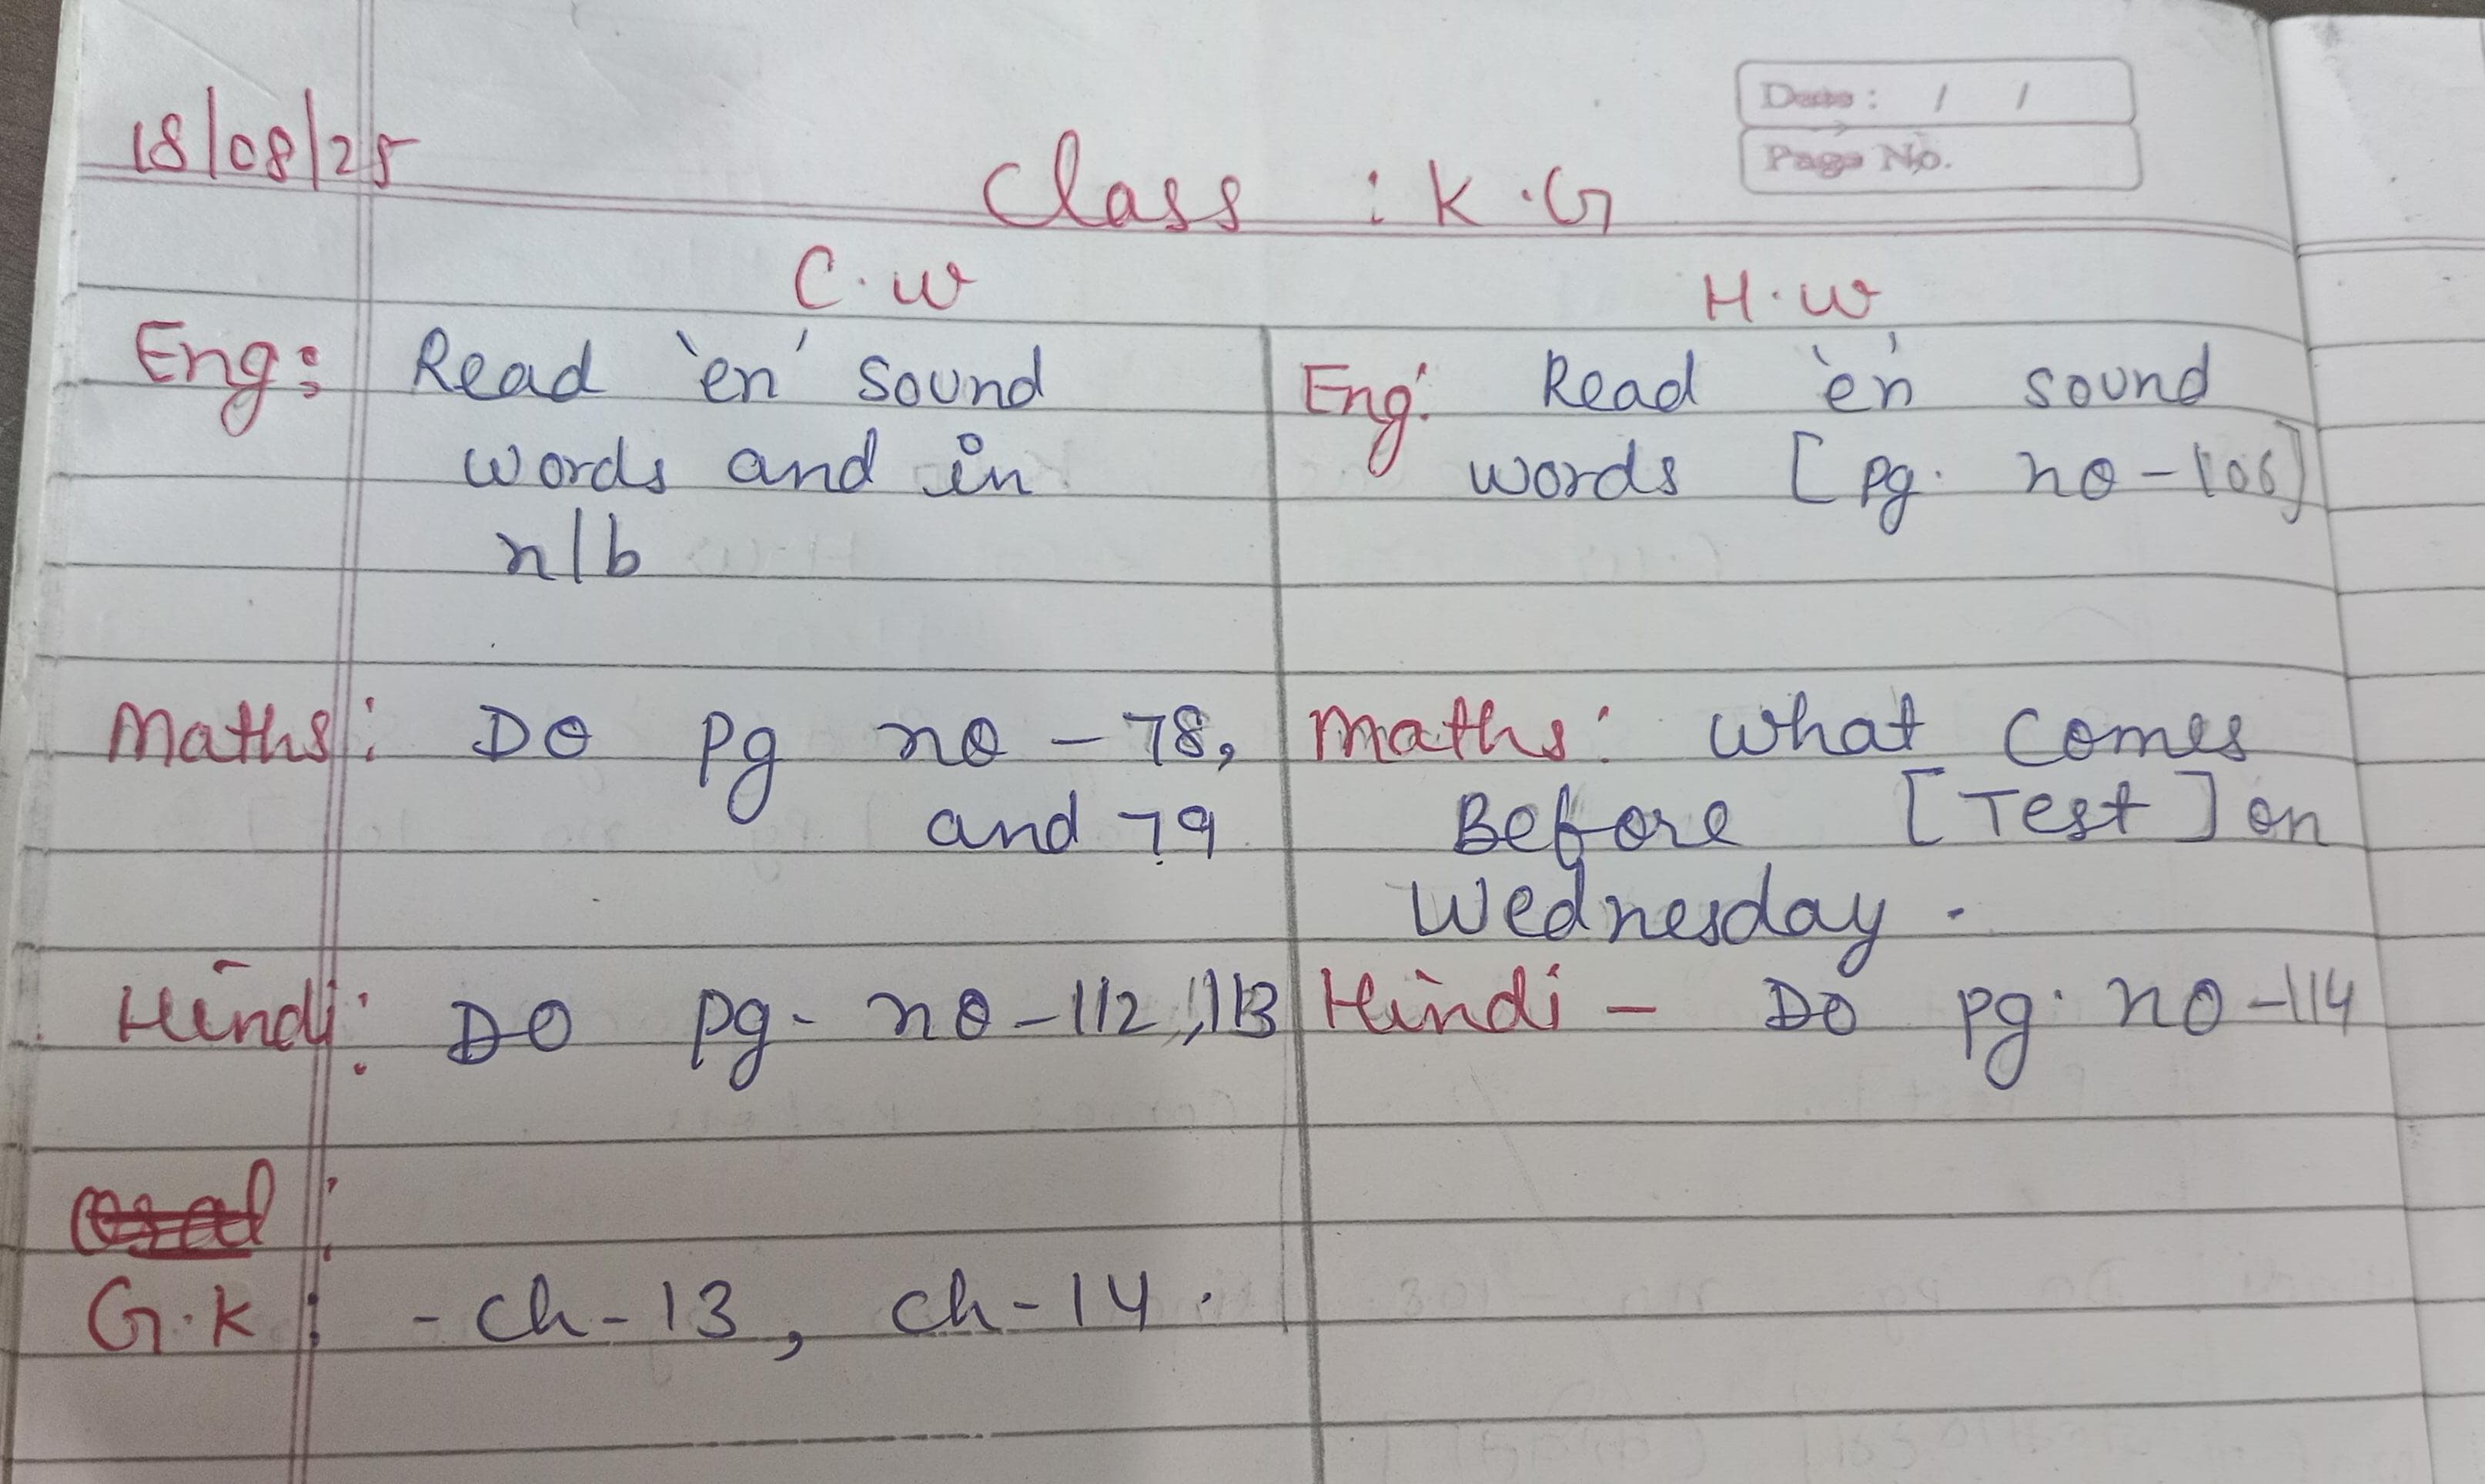 Date: / /
Page No.
18/08/25
Class : K.G
C.W
Eng: Read 'en' sound
words and in
n/b
Maths: Do Pg no - 78,
and 79
Hindi: Do pg- no-112,113
G.K: - Ch-13, Ch-14.
H.W
Eng: Read 'en' sound
words [Pg. no-106]
Maths: What comes
Before [Test] on
Wednesday.
Hindi - Do pg. no-114